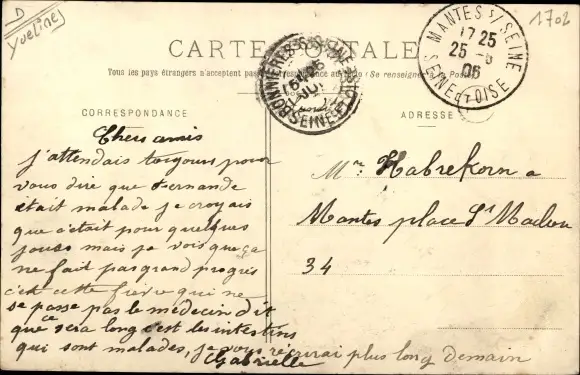 D
Yvelines
1702
CARTE POSTALE
Tous les pays étrangers n'acceptent pas la correspondance au recto (Se renseigner à la Poste)
MANTES S/ SEINE
17 25
25 - 6
06
SEINE ET OISE
BONNIÈRES-S-SEINE
SEINE-ET-OISE
CORRESPONDANCE
ADRESSE
Chers amis
j'attendais toujours pour
vous dire que Fernande
était malade je croyais
que c'était pour quelques
jours mais je vois que ça
ne fait pas grand progrès
c'est cette fièvre qui ne
se passe pas le médecin dit
que ce sera long c'est les intestins
qui sont malades, je vous récrirai plus long Demain
Gabrielle
Mr Habrekorn a
Mantes place St Maclou
34